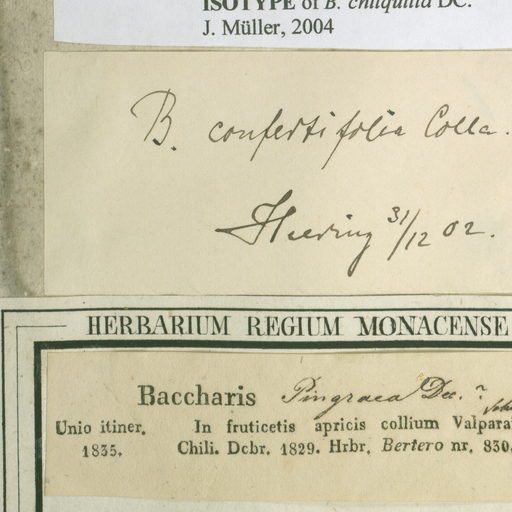 ISOTYPE of B. chilquilla DC.
J. Müller, 2004
B. confertifolia Colla.
Heering 31/12 02.
HERBARIUM REGIUM MONACENSE
Baccharis Pingraea Dec. ?
Unio itiner. In fruticetis apricis collium Valpara
1835. Chili. Dcbr. 1829. Hrbr. Bertero nr. 830.